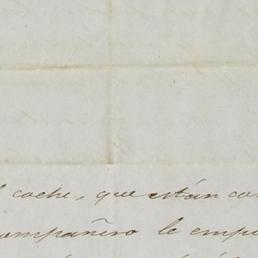 coche, que están co
compañero le emp